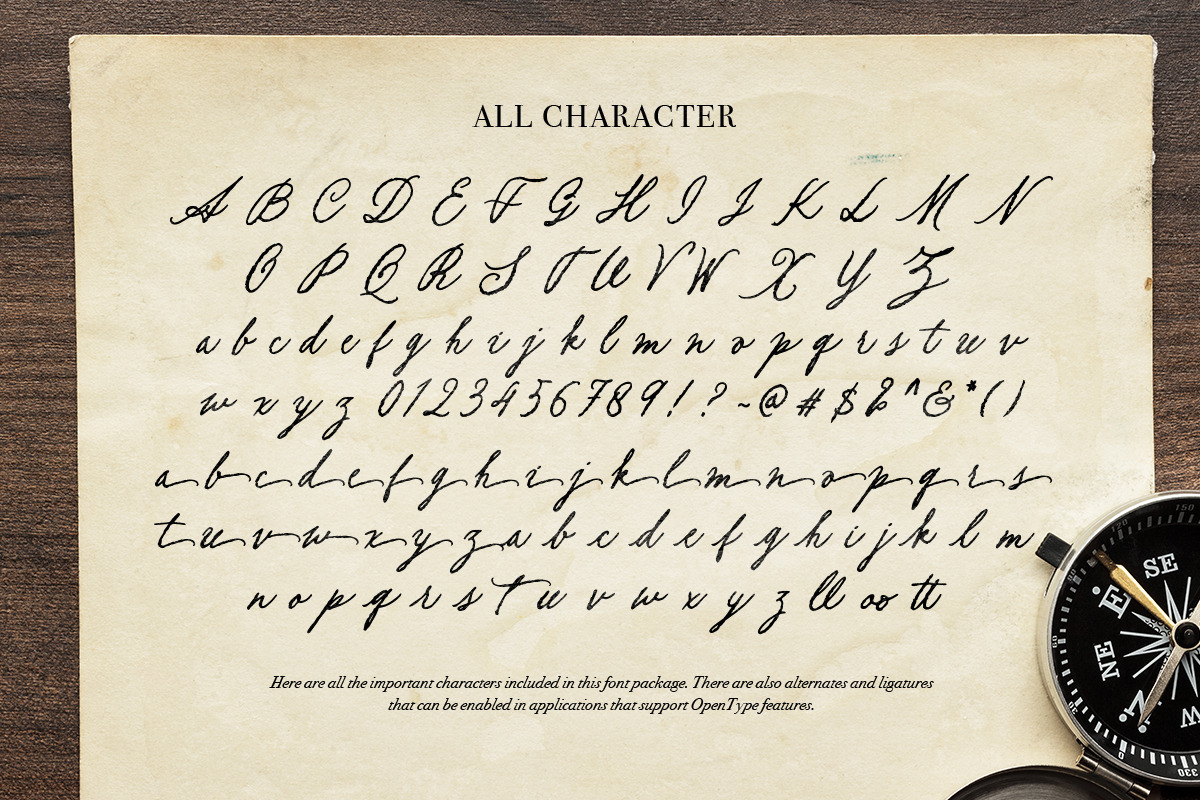 ALL CHARACTER
A B C D E F G H I J K L M N
O P Q R S T U V W X Y Z
a b c d e f g h i j k l m n o p q r s t u v
w x y z 0 1 2 3 4 5 6 7 8 9 ! ? ~ @ # $ % ^ & * ( )
a b c d e f g h i j k l m n o p q r s
t u v w x y z a b c d e f g h i j k l m
n o p q r s t u v w x y z ll oo tt
Here are all the important characters included in this font package. There are also alternates and ligatures
that can be enabled in applications that support OpenType features.
SE
E
NE
N
W
120
150
60
30
0
330